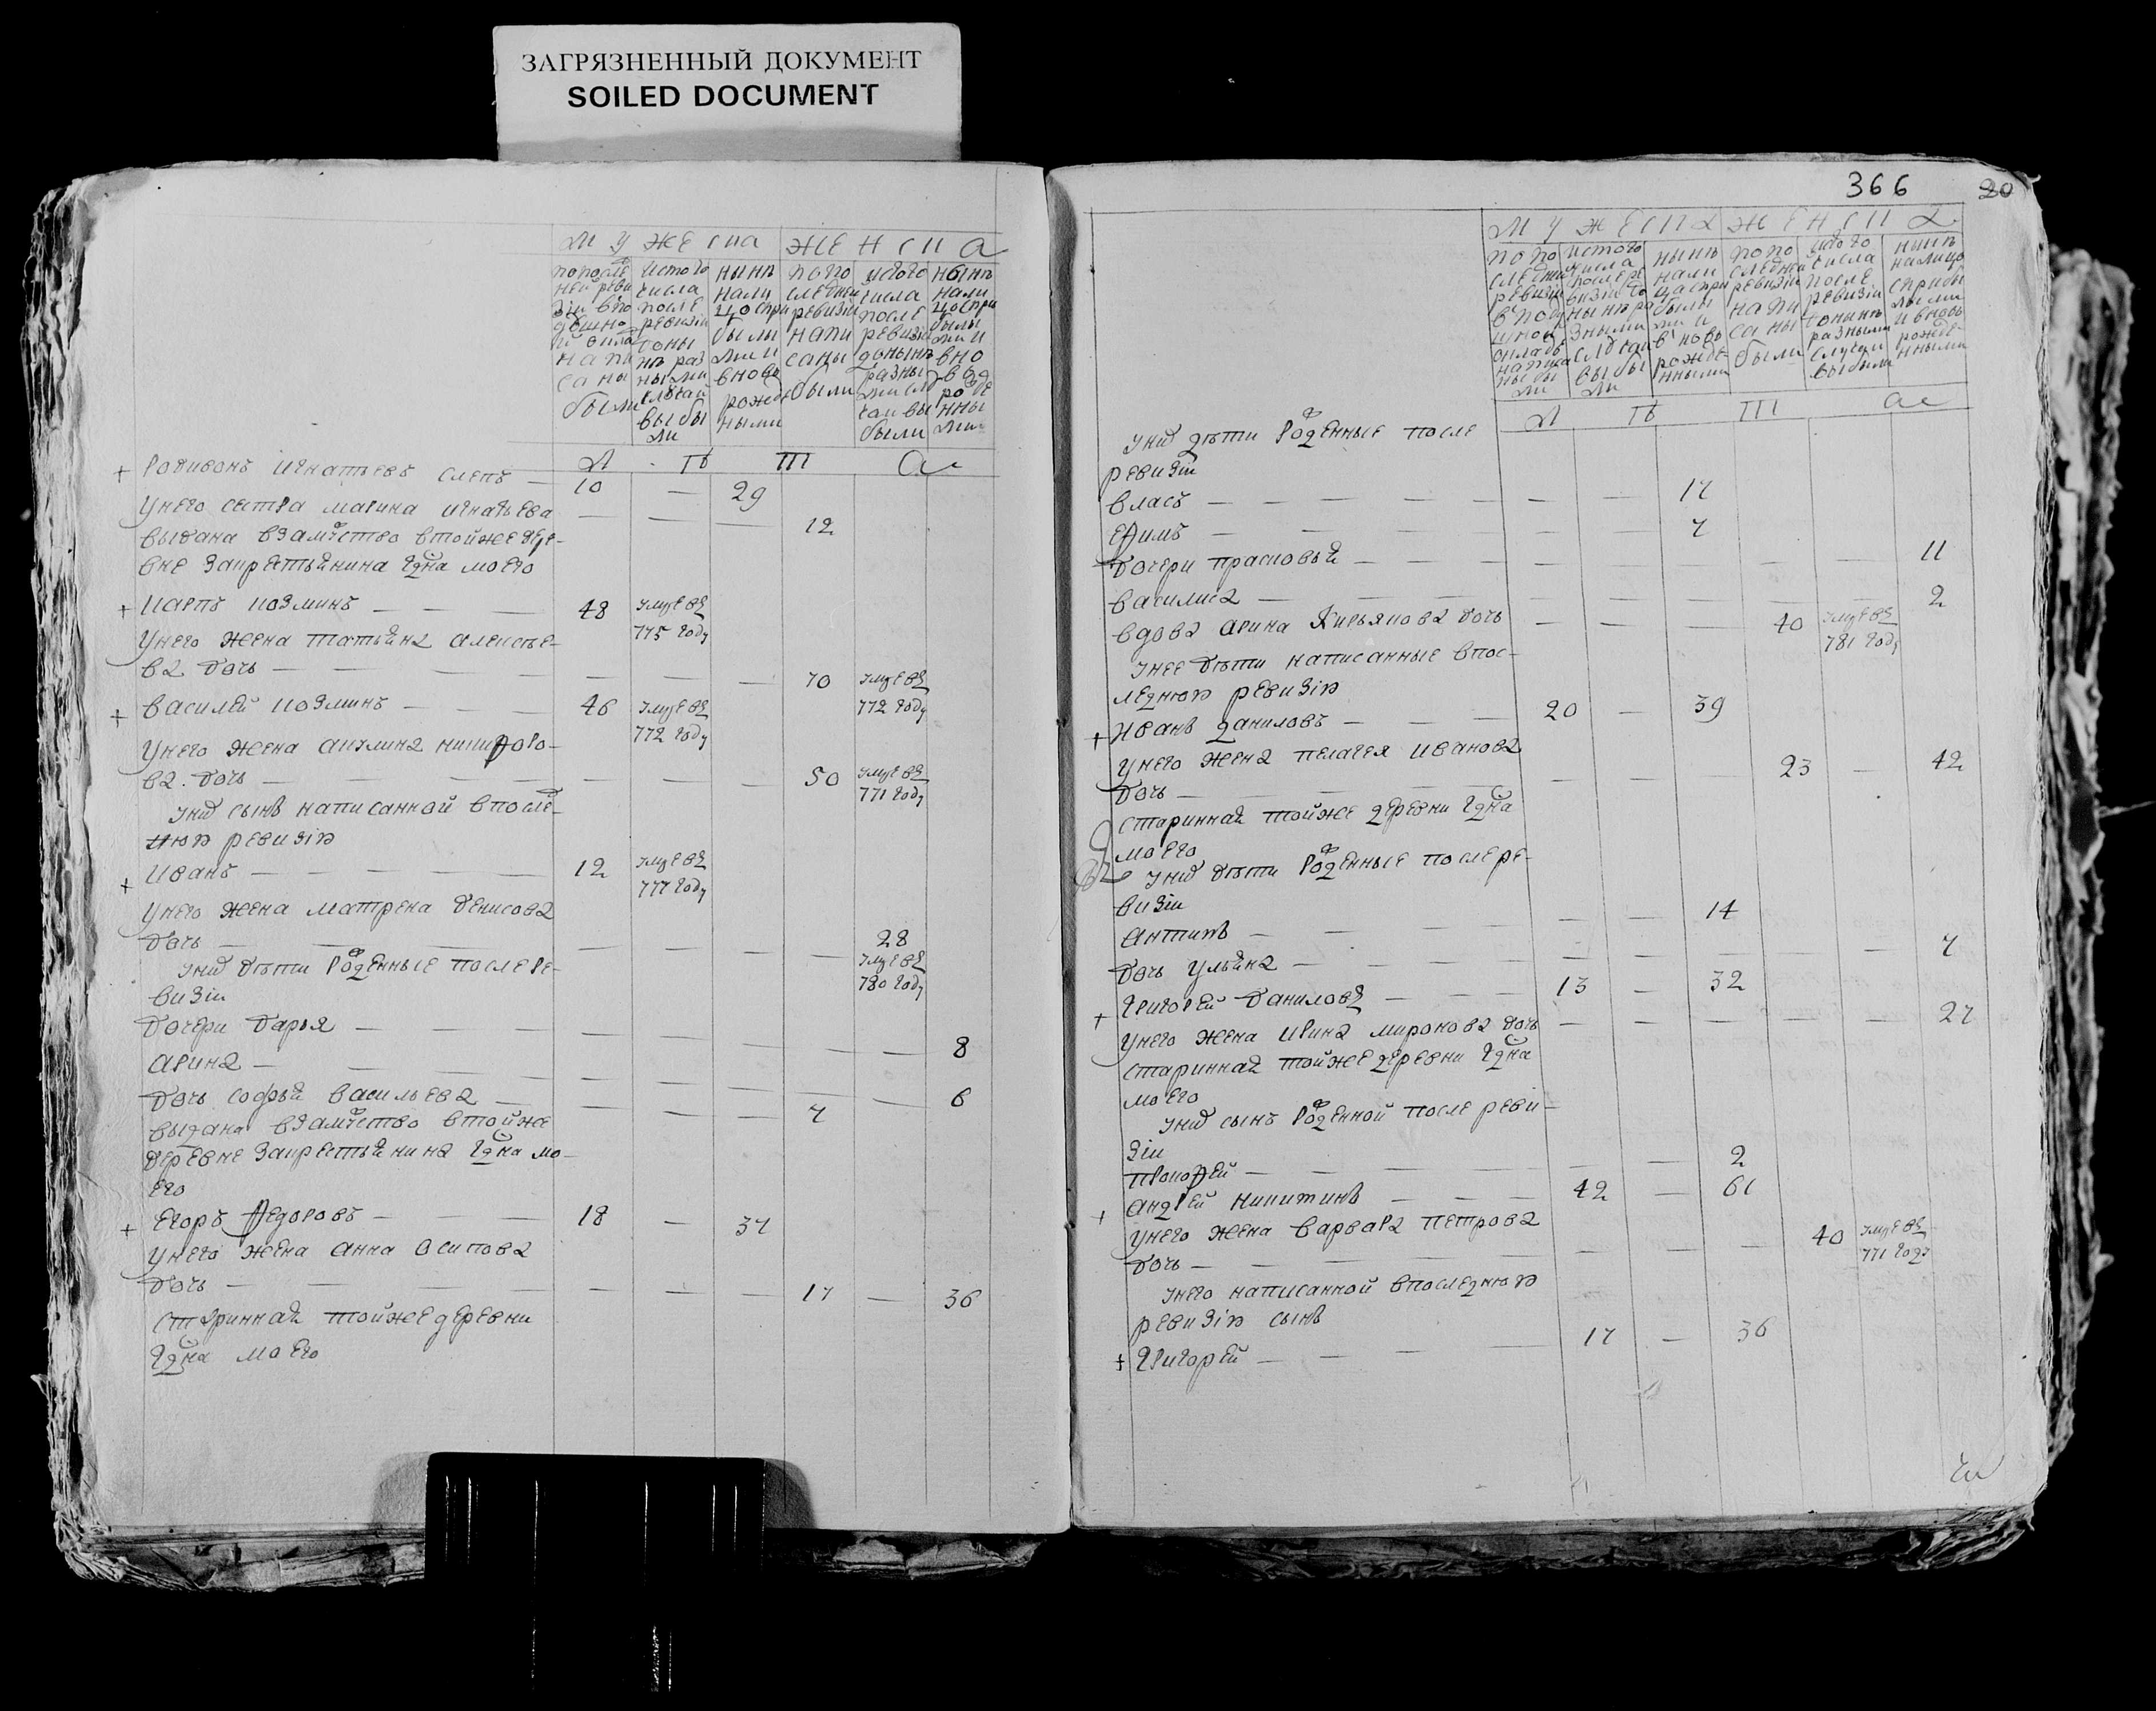 ЗАГРЯЗНЕННЫЙ ДОКУМЕНТ
SOILED DOCUMENT
МУЖЕСКА ЖЕНСКА
по последней ревизии в подушной оклад написаны были
ис того числа после ревизии до ныне разными случаи выбыли
ныне на лицо с прибылыми и вновь рожденными
по последней ревизии написаны были
ис того числа после ревизии до ныне разными случаи выбыли
ныне на лицо с прибылыми и вновь рожденными
Л ТЪ Ш А
+ Родивонъ Игнатьевъ слепъ — 10 — 29
У него сестра Марина Игнатьева — — — 12
выдана взамуство втойже дере-
вне за крестьянина гдна моего
+ Карпъ Козминъ — — — 48 умре въ
775 году
У него жена Татьяна Алексѣе-
ва дочь — — — — — — 70 умре въ
772 году
+ Василей Козминъ — — — 46 умре въ
772 году
У него жена Акулина Никифоро-
ва дочь — — — — — — 50 умре въ
771 году
У них сынъ написанной в после-
нюю ревизiю
+ Иванъ — — — — 12 умре въ
777 году
У него жена Матрена Денисова
дочь — — — — — — — 28
умре въ
780 году
У них дѣти роденные после ре-
визiи
дочери Дарья — — — — — — — — 8
Арина — — — — — — — — 6
дочь Софья Васильева — — — — 7
выдана взамуство втойже
деревне за крестьянина гдна мо-
его
+ Егоръ Федоровъ — — — 18 — 37
У него жена Анна Осипова
дочь — — — — — — 17 — 36
старинная тойже деревни
гдна моего
366 20
МУЖЕСКА ЖЕНСКА
по последней ревизии в подушной оклад написаны были
ис того числа после ревизiи до ныне разными случаи выбыли
ныне на лицо с прибылыми и вновь рожденными
по последней ревизiи написаны были
ис того числа после ревизiи до ныне разными случаи выбыли
ныне на лицо с прибылыми и вновь рожденными
Л ТЪ Ш А
У них дѣти роденные после
ревизiи
Власъ — — — — — — — 17
Ефимъ — — — — — — 7
дочери Прасковья — — — — — — 11
Василиса — — — — — — — 2
вдова Арина Кирьянова дочь — — — 40 умре въ
781 году
У нее дѣти написанные в пос-
леднюю ревизiю
+ Иванъ Даниловъ — — — 20 — 39
У него жена Пелагея Иванова
дочь — — — — — — 23 — 42
старинная тойже деревни гдна
моего
У них дѣти роденные после ре-
визiи
Антипъ — — — — — — 14
дочь Ульяна — — — — — — — 7
+ Григорей Даниловъ — — — 13 — 32
У него жена Ирина Миронова дочь — — — — — 27
старинная тойже деревни гдна
моего
У них сынъ роденной после реви-
зiи
Прокофей — — — — — — 2
+ Андрей Никитинъ — — — 42 — 61
У него жена Варвара Петрова
дочь — — — — — — 40 умре въ
771 году
У него написанной в последнюю
ревизiю сынъ
+ Григорей — — — — 17 — 36